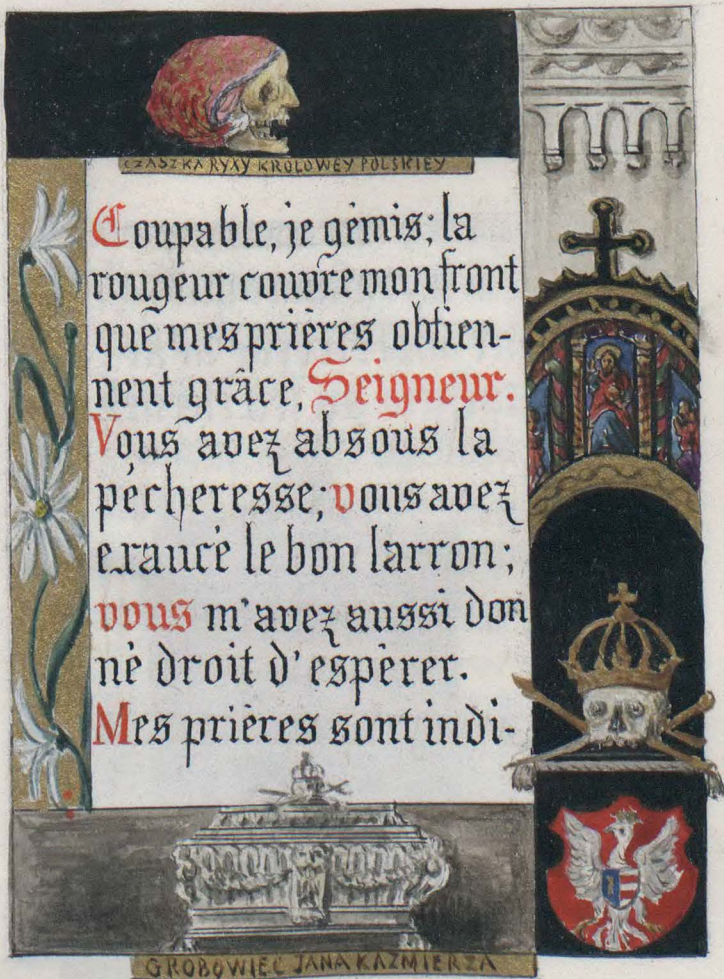 CZASZKA RYXY KROLOWEY POLSKIEY
Coupable, je gémis; la
rougeur couvre mon front
que mes prières obtien-
nent grâce, Seigneur.
Vous avez absous la
pécheresse; vous avez
exaucé le bon larron;
vous m'avez aussi don
né droit d'espérer.
Mes prières sont indi-
GROBOWIEC JANA KAZMIERZA